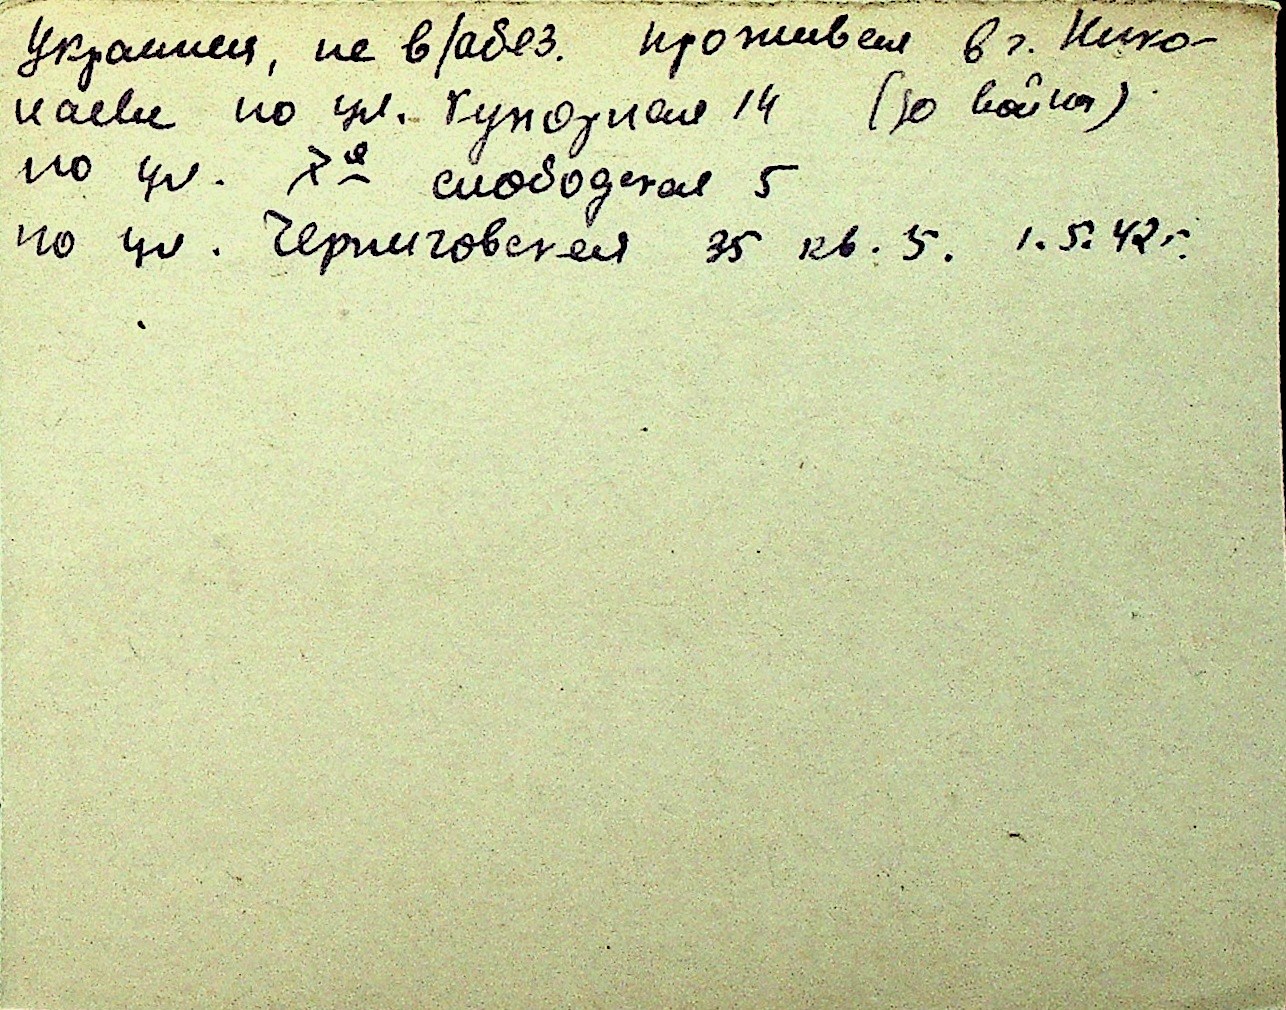 Украинец, не в/обяз. проживал в г. Нико-
лаеве по ул. 14 (до войны)
по ул. слободская 5
по ул. Черниговская 35 кв. 5. 1.5.42 г.